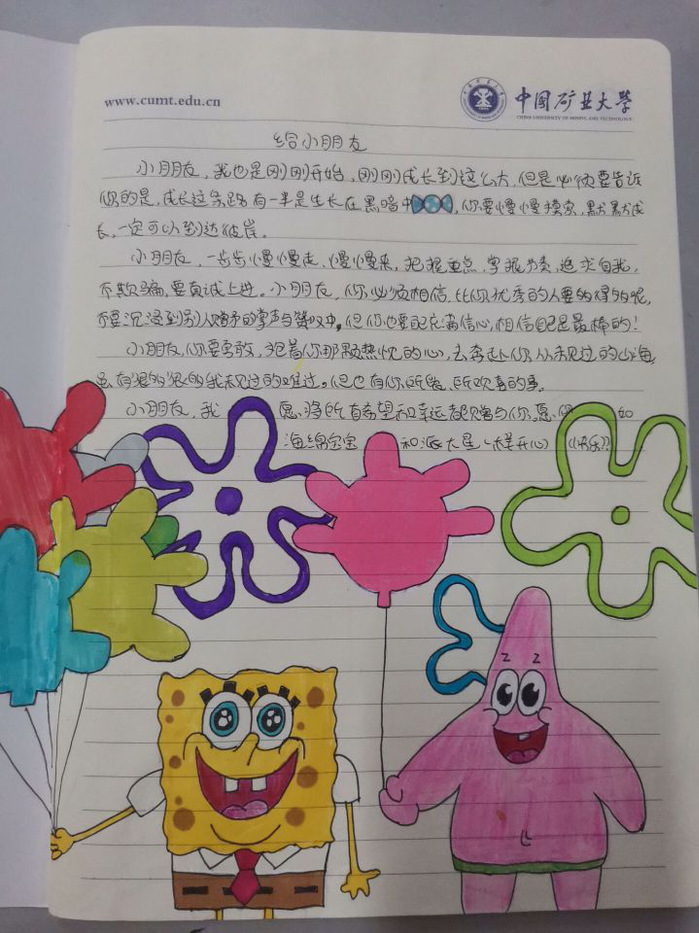 www.cumt.edu.cn
中国矿业大学
CHINA UNIVERSITY OF MINING AND TECHNOLOGY
给小朋友
小朋友，我也是刚刚开始，刚刚成长到这么大，但是必须要告诉
你的是，成长这条路有一半是生长在黑暗中，你要慢慢摸索，默默成
长，一定可以到达彼岸。
小朋友，一步步慢慢走、慢慢来，把握重点，掌握节奏，追求自我，
不欺骗，要真诚上进。小朋友，你必须相信，比你优秀的人要多得多呢，
不要沉浸到别人赠予的掌声与赞叹中，但你也要充满信心，相信自己是最棒的！
小朋友，你要勇敢，抱着你那颗热忱的心，去奔赴你从未见过的山海，
虽有很多很多我未见过的难过。但也有你所爱、所欢喜的事。
小朋友，我愿将所有希望和幸运都赠与你，愿你如
海绵宝宝和派大星一样开心（快乐）！
z z